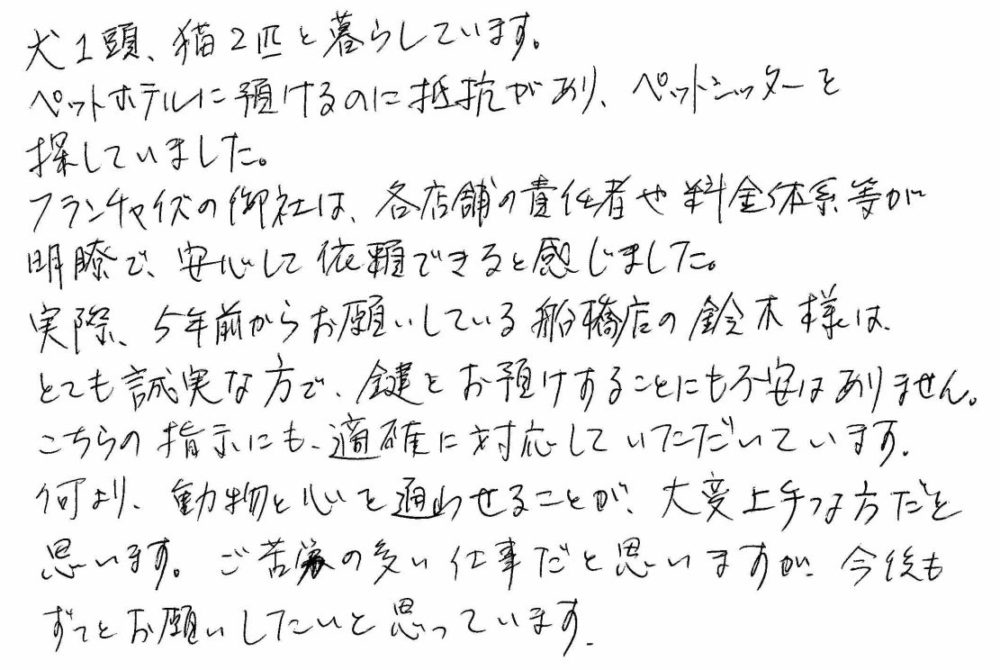 犬1頭、猫2匹と暮らしています。
ペットホテルに預けるのに抵抗があり、ペットシッターを
探していました。
フランチャイズの御社は、各店舗の責任者や料金体系等が
明瞭で、安心して依頼できると感じました。
実際、5年前からお願いしている船橋店の鈴木様は、
とても誠実な方で、鍵をお預けすることにも不安はありません。
こちらの指示にも、適確に対応していただいています。
何より、動物と心を通わせることが、大変上手な方だと
思います。ご苦労の多い仕事だと思いますが、今後も
ずっとお願いしたいと思っています。